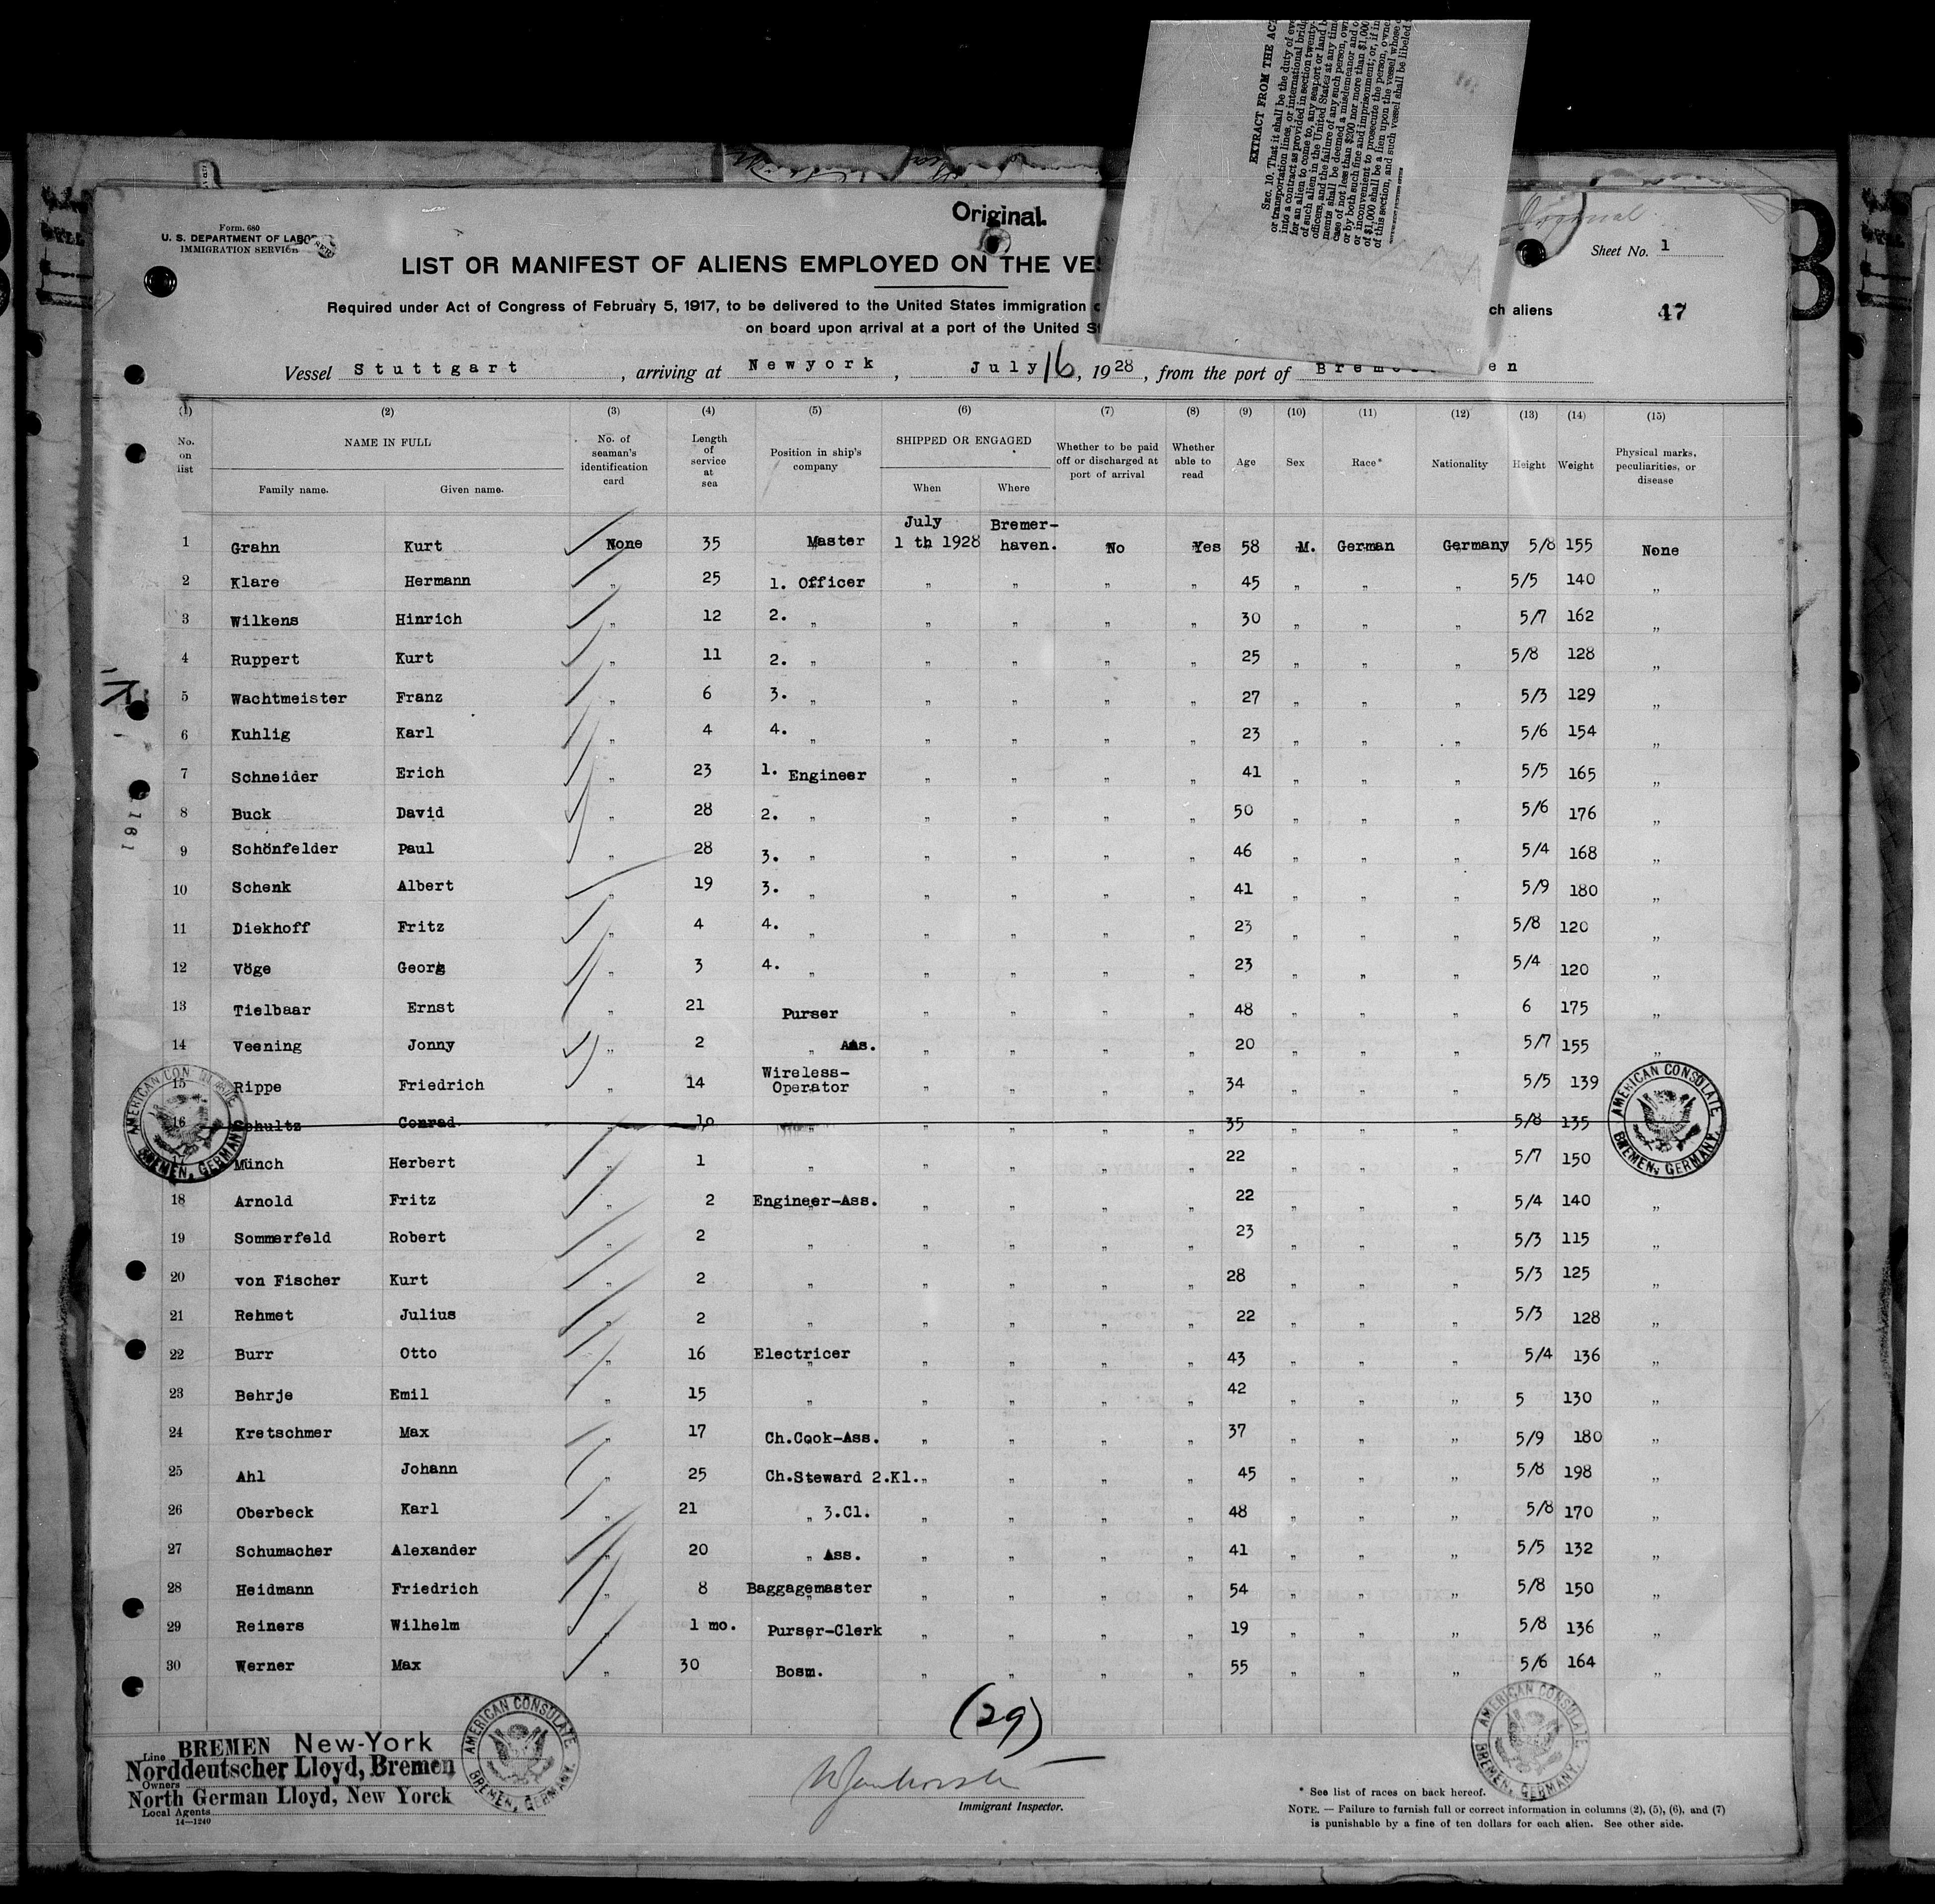 EXTRACT FROM THE ACT
SEC. 10. That it shall be the duty of eve
or transportation lines, or international bridg
into a contract as provided in section twenty-
for an alien to come to, any seaport or land b
of such alien in the United States at any time
officers, and the failure of any such person, own
ments shall be deemed a misdemeanor and o
case of not less than $200 nor more than $1,000
or by both such fine and imprisonment; or, if in
or inconvenient to prosecute the person, owne
of $1,000 shall be a lien upon the vessel whose
of this section, and such vessel shall be libeled
Original.
Original
Form. 680
U. S. DEPARTMENT OF LABOR
IMMIGRATION SERVICE
Sheet No. 1
LIST OR MANIFEST OF ALIENS EMPLOYED ON THE VES
Required under Act of Congress of February 5, 1917, to be delivered to the United States immigration o ch aliens
47
on board upon arrival at a port of the United St
Vessel Stuttgart, arriving at Newyork, July 16, 1928, from the port of Breme en
(1) (2) (3) (4) (5) (6) (7) (8) (9) (10) (11) (12) (13) (14) (15)
No. on list NAME IN FULL Family name. Given name. No. of seaman's identification card Length of service at sea Position in ship's company SHIPPED OR ENGAGED When Where Whether to be paid off or discharged at port of arrival Whether able to read Age Sex Race* Nationality Height Weight Physical marks, peculiarities, or disease
1 Grahn Kurt None 35 Master July 1 th 1928 Bremer-haven. No Yes 58 M. German Germany 5/8 155 None
2 Klare Hermann „ 25 1. Officer „ „ „ „ 45 „ „ „ 5/5 140 „
3 Wilkens Hinrich „ 12 2. „ „ „ „ „ 30 „ „ „ 5/7 162 „
4 Ruppert Kurt „ 11 2. „ „ „ „ „ 25 „ „ „ 5/8 128 „
5 Wachtmeister Franz „ 6 3. „ „ „ „ „ 27 „ „ „ 5/3 129 „
6 Kuhlig Karl „ 4 4. „ „ „ „ „ 23 „ „ „ 5/6 154 „
7 Schneider Erich „ 23 1. Engineer „ „ „ „ 41 „ „ „ 5/5 165 „
8 Buck David „ 28 2. „ „ „ „ „ 50 „ „ „ 5/6 176 „
9 Schönfelder Paul „ 28 3. „ „ „ „ „ 46 „ „ „ 5/4 168 „
10 Schenk Albert „ 19 3. „ „ „ „ „ 41 „ „ „ 5/9 180 „
11 Diekhoff Fritz „ 4 4. „ „ „ „ „ 23 „ „ „ 5/8 120 „
12 Vöge Georg „ 3 4. „ „ „ „ „ 23 „ „ „ 5/4 120 „
13 Tielbaar Ernst „ 21 Purser „ „ „ „ 48 „ „ „ 6 175 „
14 Veening Jonny „ 2 „ Ass. „ „ „ „ 20 „ „ „ 5/7 155 „
15 Rippe Friedrich „ 14 Wireless-Operator „ „ „ „ 34 „ „ „ 5/5 139
16 Schultz Conrad „ 10 „ „ „ „ „ 35 „ „ „ 5/8 135
17 Münch Herbert „ 1 „ „ „ „ „ 22 „ „ „ 5/7 150
18 Arnold Fritz „ 2 Engineer-Ass. „ „ „ „ 22 „ „ „ 5/4 140 „
19 Sommerfeld Robert „ 2 „ „ „ „ „ 23 „ „ „ 5/3 115 „
20 von Fischer Kurt „ 2 „ „ „ „ „ 28 „ „ „ 5/3 125 „
21 Rehmet Julius „ 2 „ „ „ „ „ 22 „ „ „ 5/3 128 „
22 Burr Otto „ 16 Electricer „ „ „ „ 43 „ „ „ 5/4 136 „
23 Behrje Emil „ 15 „ „ „ „ „ 42 „ „ „ 5 130 „
24 Kretschmer Max „ 17 Ch.Cook-Ass. „ „ „ „ 37 „ „ „ 5/9 180 „
25 Ahl Johann „ 25 Ch.Steward 2.Kl. „ „ „ „ 45 „ „ „ 5/8 198 „
26 Oberbeck Karl „ 21 „ 3.Cl. „ „ „ „ 48 „ „ „ 5/8 170 „
27 Schumacher Alexander „ 20 „ Ass. „ „ „ „ 41 „ „ „ 5/5 132 „
28 Heidmann Friedrich „ 8 Baggagemaster „ „ „ „ 54 „ „ „ 5/8 150 „
29 Reiners Wilhelm „ 1 mo. Purser-Clerk „ „ „ „ 19 „ „ „ 5/8 136 „
30 Werner Max „ 30 Bosm. „ „ „ „ 55 „ „ „ 5/6 164 „
AMERICAN CONSULATE BREMEN, GERMANY.
AMERICAN CONSULATE BREMEN, GERMANY.
(29)
Line BREMEN New-York
Norddeutscher Lloyd, Bremen
Owners
North German Lloyd, New Yorck
Local Agents
14—1240
AMERICAN CONSULATE BREMEN, GERMANY.
AMERICAN CONSULATE BREMEN, GERMANY.
Immigrant Inspector.
* See list of races on back hereof.
NOTE. — Failure to furnish full or correct information in columns (2), (5), (6), and (7)
is punishable by a fine of ten dollars for each alien. See other side.